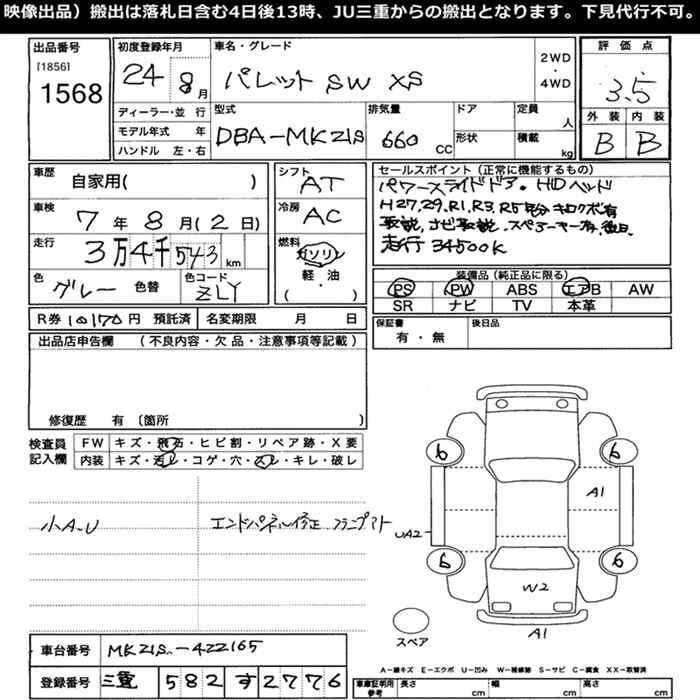 映像出品）搬出は落札日含む4日後13時、JU三重からの搬出となります。下見代行不可。
出品番号
[1856]
1568
初度登録年月
24 8月
車名・グレード
パレット SW XS
2WD
・
4WD
評価点
3.5
外装 内装
B B
ディーラー・並行
モデル年式 年
ハンドル 左・右
型式
DBA-MK21S
排気量
660 CC
ドア
形状
定員
人
積載
kg
車歴
自家用( )
車検
7年8月(2日)
走行
3万4千543km
色
グレー 色替
色コード
ZLY
シフト
AT
冷房
AC
燃料
ガソリン
軽・油
( )
セールスポイント（正常に機能するもの）
パワースライドドア・HIDヘッド
H27,29,R1,R3,R5年分キロクボ有
取説,ナビ取説,スペアーキー有,後日
走行34500K
装備品（純正品に限る）
PS PW ABS エアB AW
SR ナビ TV 本革
R券 10170円 預託済 名変期限 月 日
保証書
有・無
後日品
出品店申告欄 （不良内容・欠品・注意事項等記載）
修復歴 有 〔箇所 〕
検査員
記入欄
FW キズ・飛石・ヒビ割・リペア跡・X要
内装 キズ・汚レ・コゲ・穴・スレ・キレ・破レ
小A、U
エンドパネル修正
6
6
A1
UA2
6
6
W2
A1
スペア
車台番号 MK21S-422165
登録番号 三重 582 す 2776
A－線キズ E－エクボ U－凹み W－補修跡 S－サビ C－腐食 XX－取替済
車庫証明用
参考
長さ cm 幅 cm 高さ cm